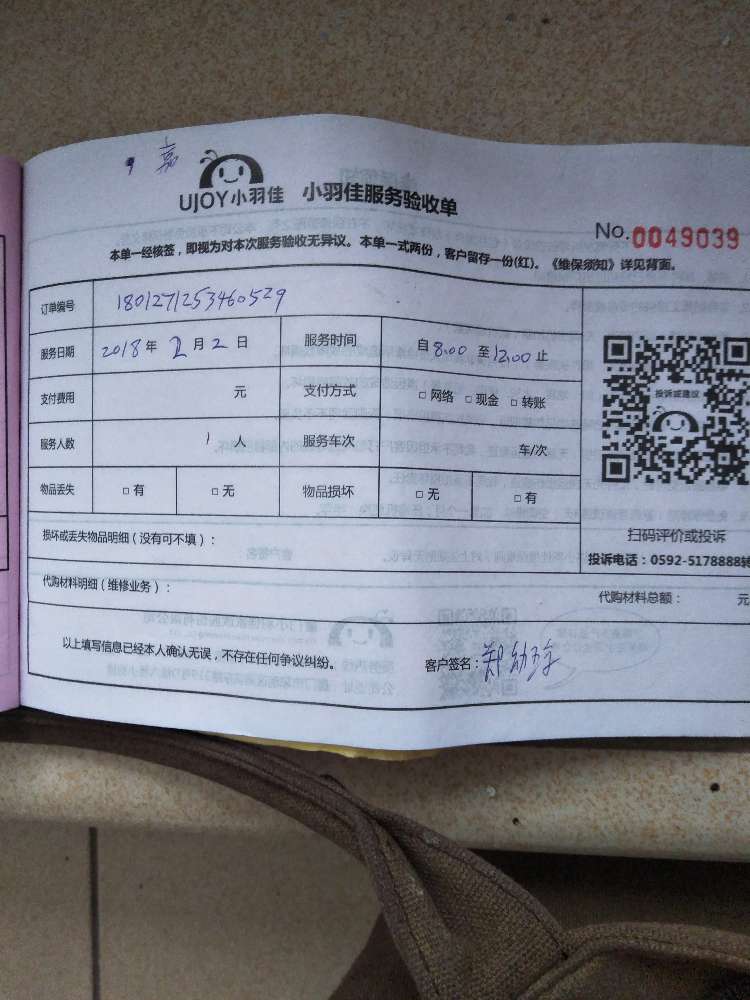 嘉
UJOY小羽佳 小羽佳服务验收单
No.0049039
本单一经核签，即视为对本次服务验收无异议。本单一式两份，客户留存一份(红)。《维保须知》详见背面。
订单编号 1801271253460529
服务日期 2018年2月2日 服务时间 自8:00至12:00止
支付费用 元 支付方式 □网络 □现金 □转账
投诉或建议
服务人数 1人 服务车次 车/次
物品丢失 □有 □无 物品损坏 □无 □有
扫码评价或投诉
损坏或丢失物品明细（没有可不填）：
投诉电话：0592-5178888转
代购材料明细（维修业务）：
代购材料总额： 元
以上填写信息已经本人确认无误，不存在任何争议纠纷。 客户签名：郑幼